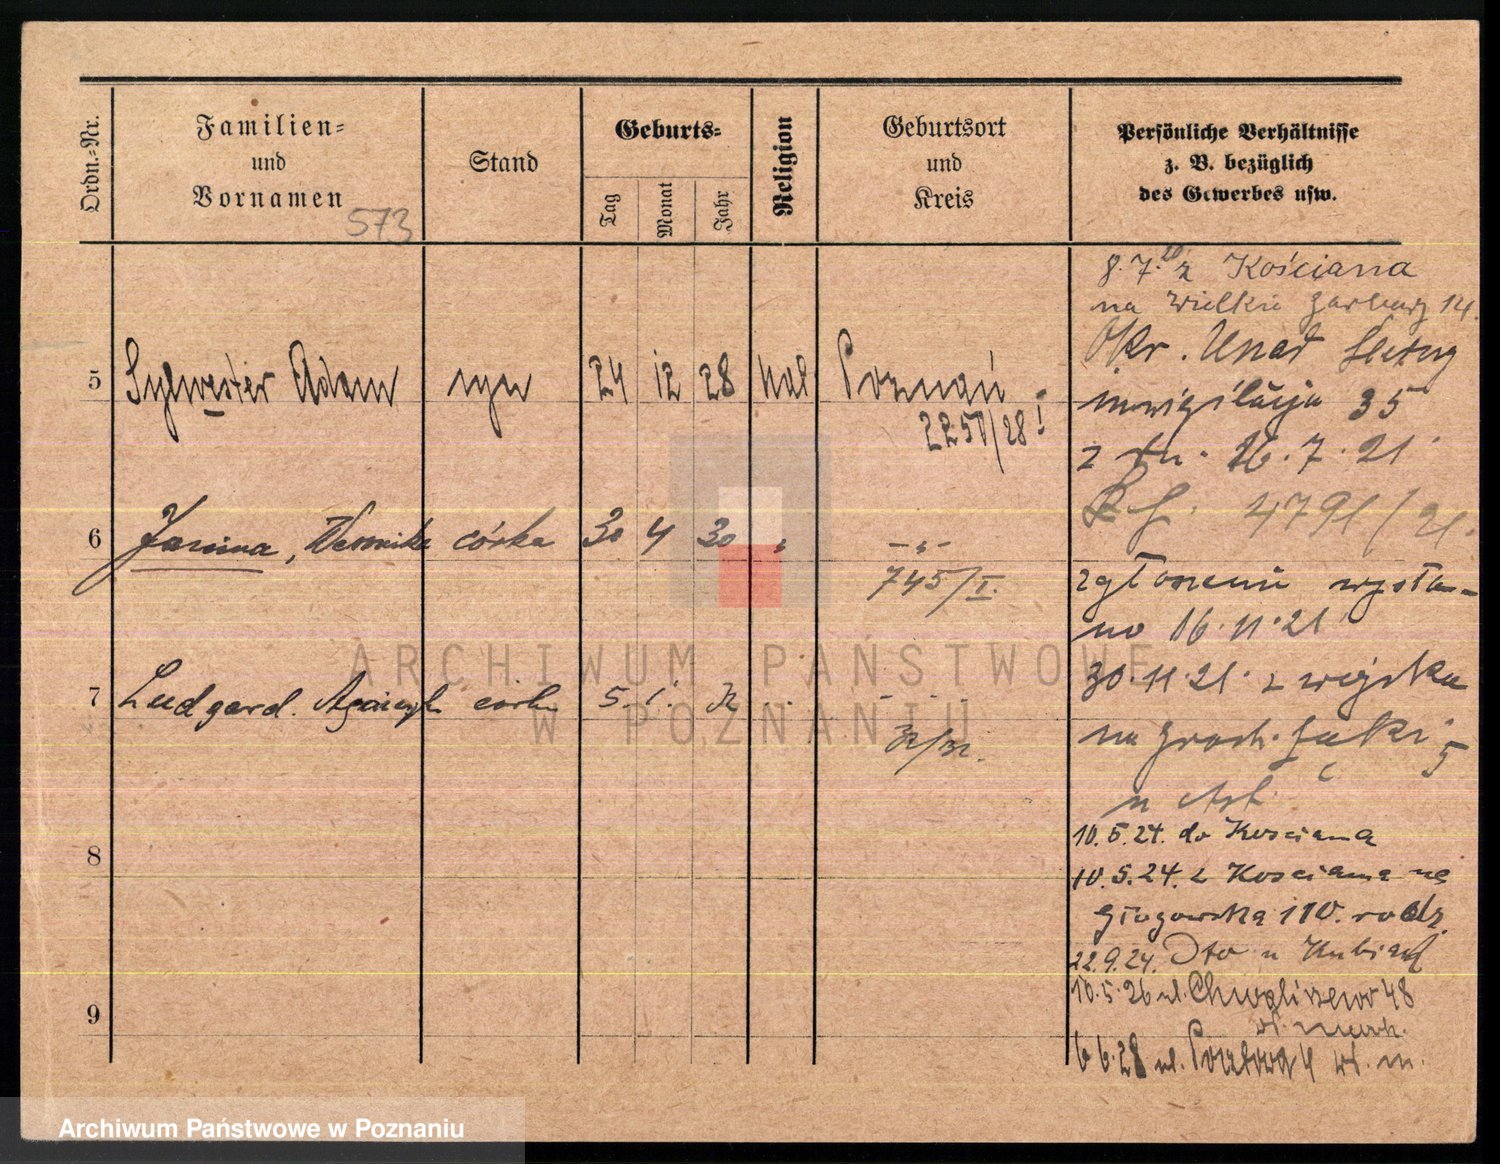 Ordn.-Nr.
Familien-
und
Vornamen
573
Stand
Geburts-
Tag
Monat
Jahr
Religion
Geburtsort
und
Kreis
Persönliche Verhältnisse
z. B. bezüglich
des Gewerbes usw.
5
Sylwester Adam syn 24 12 28 kat Poznań
2250/28!
6
Janina, Weronika córka 30 4 30 " -"-
745/I.
7
Ludgard. córka 5. 1. 32
32/32.
8
9
8.7.20 z Kościana
na Wielkie Garbary 14.
Okr. Urząd
inwigilacja 35
z dn. 26.7.21
4791/21.
zgłoszenie wysła-
no 16.11.21
30.11.21. z wojska
na Łąki 5
10.5.24. do Kościana
10.5.24. z Kościana na
Głogowska 110. rodz.
22.9.24. Dto u Kubiak
10.5.26 ul. Chwaliszewo 48
6 6.28 ul. Pocztowa 4 wł. m.
ARCHIWUM PAŃSTWOWE
W POZNANIU
Archiwum Państwowe w Poznaniu